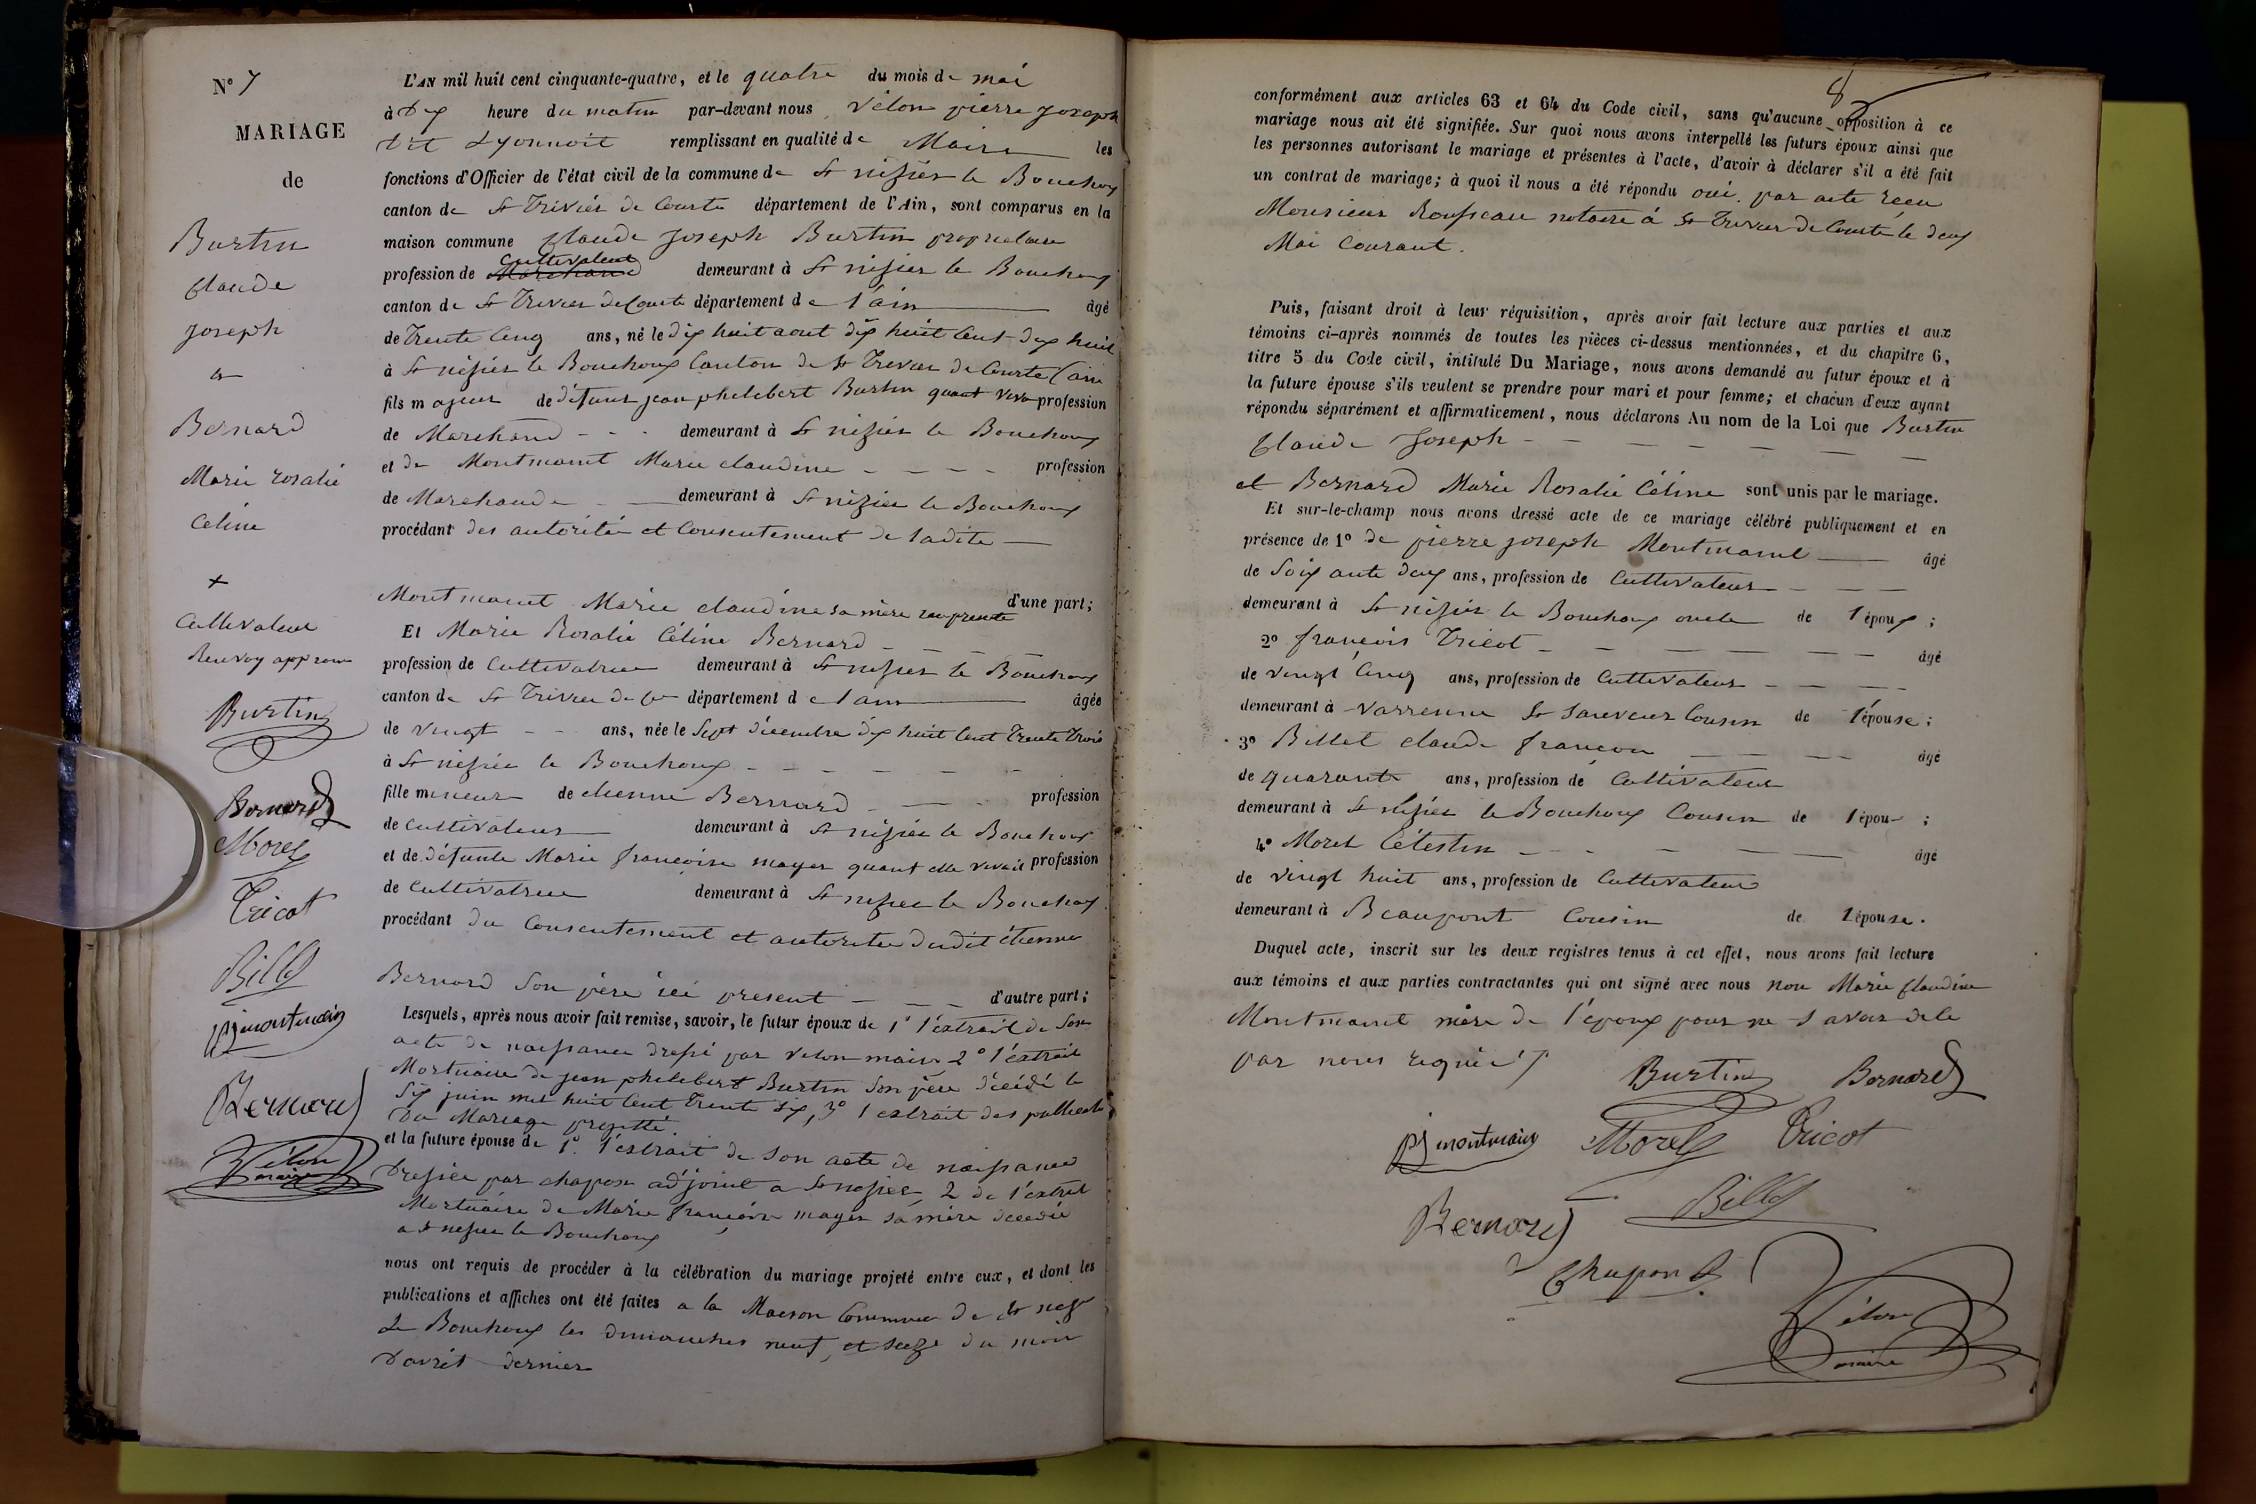 N° 7
MARIAGE
de
Burtin
Claude
Joseph
a
Bernard
Marie rosalie
Céline
+
Cultivateur
Renvoy approuvé
Burtin
Bernard
Morel
Tricot
Billet
pjmontmain
Bernard
Vélon
maire
L'AN mil huit cent cinquante-quatre, et le quatre du mois de mai
à Dix heure du matin par-devant nous Vélon pierre Joseph
dit Lyonnoit remplissant en qualité de Maire les
fonctions d'Officier de l'état civil de la commune de St nisier le Bouchoux
canton de St Trivier de Courte département de l'Ain, sont comparus en la
maison commune Claude Joseph Burtin propriétaire
profession de Cultivateur Marchand demeurant à St nisier le Bouchoux
canton de St Trivier de Courte département de l'ain âgé
de Trente Cinq ans, né le dix huit aout dix huit Cent dix huit
à St nisier le Bouchoux Canton de St Trivier de Courte (ain
fils majeur de défunt jean philebert Burtin quant vivo profession
de Marchand - - - demeurant à St nisier le Bouchoux
et de Montmaint Marie claudine - - - - profession
de Marchande demeurant à St nizier le Bouchoux
procédant des autorité et Consentement de ladite
Montmaint Marie claudine sa mère icy presente d'une part;
Et Marie Rosalie Céline Bernard
profession de Cultivatrice demeurant à St nisier le Bouchoux
canton de St Trivier de Cte département de l'ain âgée
de vingt - - ans, née le Sept décembre dix huit Cent Trente Trois
à St nisier le Bouchoux - - - - - -
fille mineur de etienne Bernard profession
de cultivateur demeurant à St nisier le Bouchoux
et de défunte Marie françoise mayer quant elle vivait profession
de Cultivatrice demeurant à St nisier le Bouchoux
procédant du Consentement et autorité dudit étienne
Bernard son père ici present - - - d'autre part;
Lesquels, après nous avoir fait remise, savoir, le futur époux de 1° l'extrait de Son
acte de naissance dressé par velon maire 2° l'extrait
Mortuaire de jean philebert Burtin son père décédé le
Six juin mil huit Cent Trente six, 3° l'extrait des publicat
du Mariage projetté
et la future épouse de 1° l'extrait de son acte de naissance
Dressée par chapon adjoint a St nisier, 2 de l'extrait
Mortuaire de Marie françoise mayer sa mère décédée
a St nisier le Bouchoux
nous ont requis de procéder à la célébration du mariage projeté entre eux, et dont les
publications et affiches ont été faites a la Maison Commune de St nisr
Le Bouchoux les dimanches neuf, et seize du mois
D'avril dernier
8
conformément aux articles 63 et 64 du Code civil, sans qu'aucune opposition à ce
mariage nous ait été signifiée. Sur quoi nous avons interpellé les futurs époux ainsi que
les personnes autorisant le mariage et présentes à l'acte, d'avoir à déclarer s'il a été fait
un contrat de mariage; à quoi il nous a été répondu oui. par acte recu
Monsieur Rousseau notaire à St Trivier de Courte le deux
Mai Courant.
Puis, faisant droit à leur réquisition, après avoir fait lecture aux parties et aux
témoins ci-après nommés de toutes les pièces ci-dessus mentionnées, et du chapitre 6,
titre 5 du Code civil, intitulé Du Mariage, nous avons demandé au futur époux et à
la future épouse s'ils veulent se prendre pour mari et pour femme; et chacun d'eux ayant
répondu séparément et affirmativement, nous déclarons Au nom de la Loi que Burtin
Claude Joseph - - - - - -
et Bernard Marie Rosalie Céline sont unis par le mariage.
Et sur-le-champ nous avons dressé acte de ce mariage célébré publiquement et en
présence de 1° de pierre joseph Montmaint âgé
de Soixante deux ans, profession de Cultivateur - - -
demeurant à St nisier le Bouchoux oncle de l'époux ;
2° françois Tricot - - - - - - âgé
de vingt Cinq ans, profession de Cultivateur - - -
demeurant à Varrenne St Sauveur Cousin de l'épouse ;
3° Billet claude françois - - âgé
de quarante ans, profession de Cultivateur
demeurant à St nisier le Bouchoux Cousin de l'épou- ;
4° Morel Célestin - - - - âgé
de vingt huit ans, profession de Cultivateur
demeurant à Beaupont Cousin de l'épouse.
Duquel acte, inscrit sur les deux registres tenus à cet effet, nous avons fait lecture
aux témoins et aux parties contractantes qui ont signé avec nous non Marie Claudine
Montmaint mère de l'époux pour ne savoir de le
par nous requis
Burtin Bernard
pjmontmain Morel Tricot
Bernard Billet
Chapon
Vélon
maire